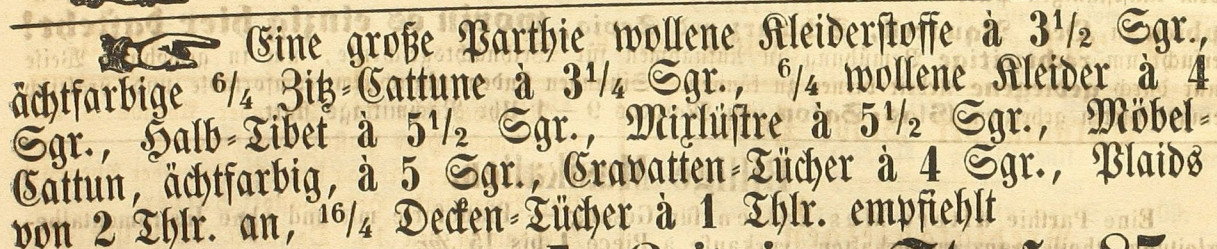 ☞ Eine große Parthie wollene Kleiderstoffe à 3½ Sgr.,
ächtfarbige ⁶/₄ Zitz-Cattune à 3¼ Sgr., ⁶/₄ wollene Kleider à 4
Sgr., Halb-Tibet à 5½ Sgr., Mixlüstre à 5½ Sgr., Möbel-
Cattun, ächtfarbig, à 5 Sgr., Cravatten-Tücher à 4 Sgr., Plaids
von 2 Thlr. an, ¹⁶/₄ Decken-Tücher à 1 Thlr. empfiehlt